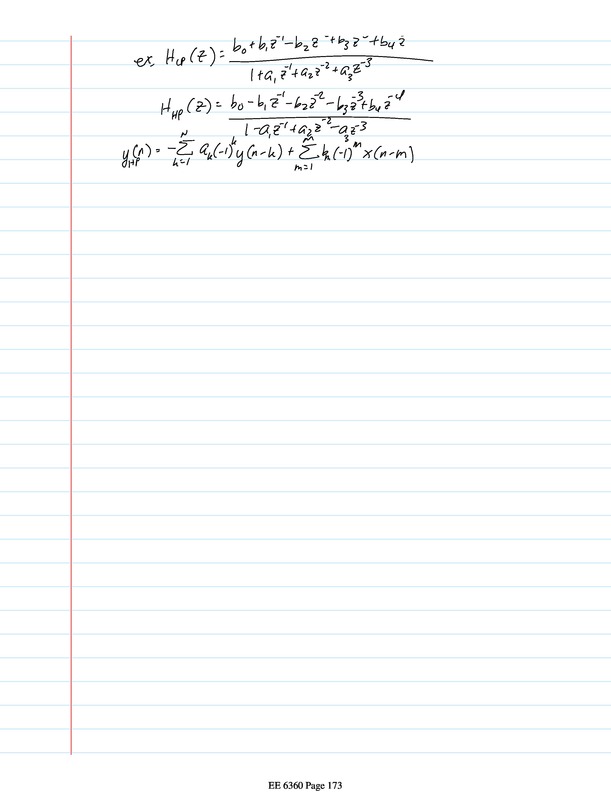 ex, H_LP(z) = (b₀ + b₁z⁻¹ - b₂z + b₃z + b₄z) / (1 + a₁z⁻¹ + a₂z⁻² + a₃z⁻³)
H_HP(z) = (b₀ - b₁z⁻¹ - b₂z⁻² - b₃z⁻³ + b₄z⁻⁴) / (1 - a₁z⁻¹ + a₂z⁻² - a₃z⁻³)
y_HP(n) = -∑_{k=1}^{N} a_k(-1)^k y(n-k) + ∑_{m=1}^{M} b_k(-1)^m x(n-m)
EE 6360 Page 173